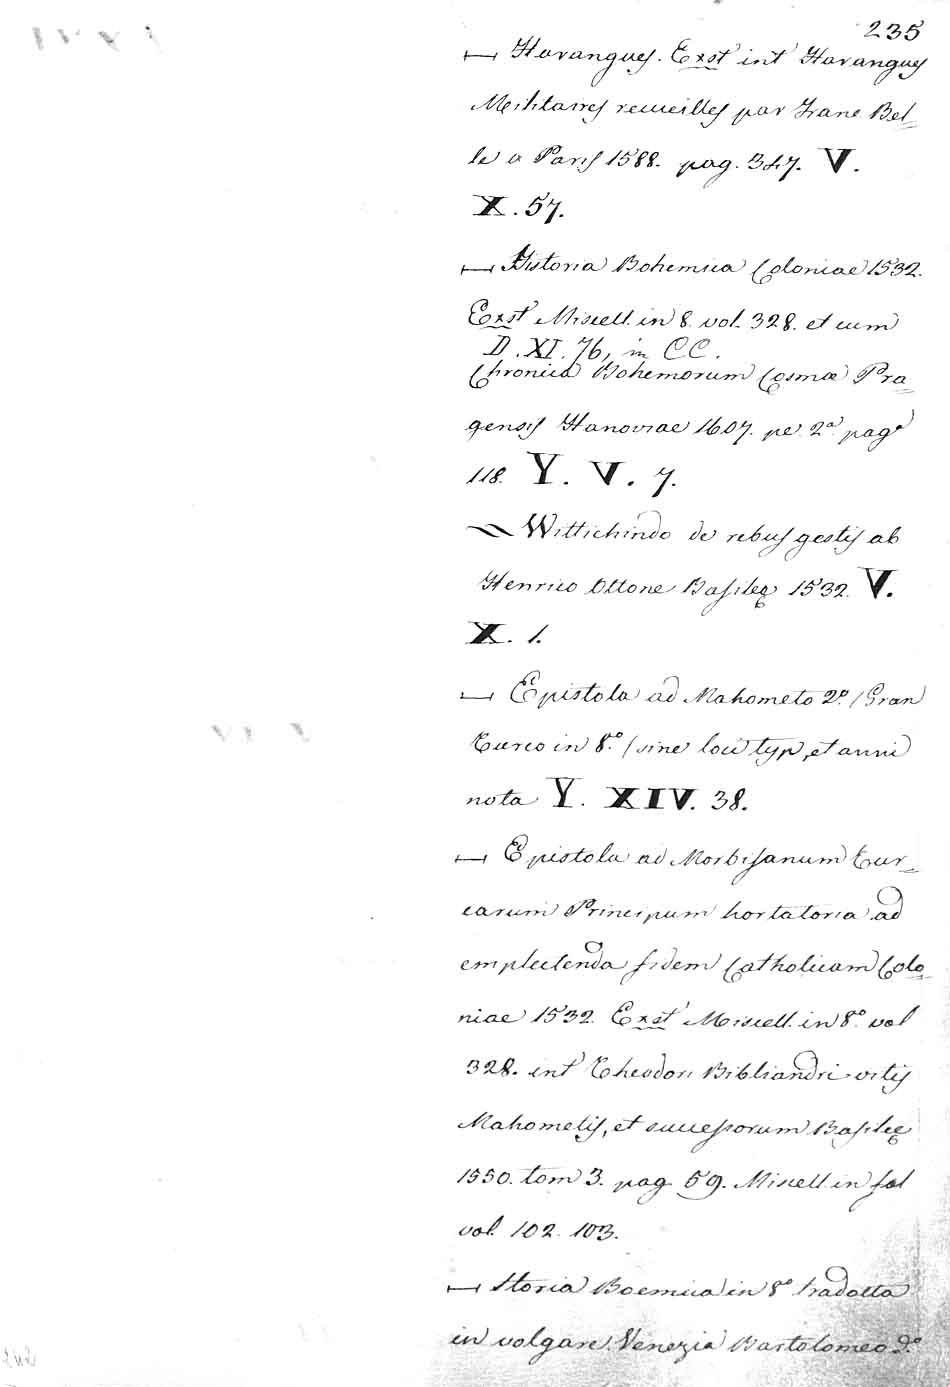 235
— Harangues. Exst int Harangues
Militaires recueilles par Franc Bel=
le a Paris 1588. pag. 347. V.
X. 57.
— Historia Bohemica Coloniae 1532.
Exst Miscell. in 8. vol. 328. et cum
D. XI. 76, in CC.
Chronica Bohemorum Cosmae Pra=
gensis Hanoviae 1607. pe. 2ª. pag.
118. Y. V. 7.
~ Wittichindo de rebus gestis ab
Henrico Ottone Basileę 1532. V.
X. 1.
— Epistola ad Mahometo 2º. (Gran
Turco in 8.º (sine loci typ, et anni
nota Y. XIV. 38.
— Epistola ad Morbisanum Tur=
carum Principum hortatoria ad
emplectenda fidem Catholicam Colo=
niae 1532. Exst Miscell. in 8.º vol
328. int Theodori Bibliandri vitis
Mahometis, et successorum Basileę
1550. tom 3. pag 59. Miscell in fol
vol. 102. 103.
— Storia Boemica in 8.º tradotta
in volgare. Venezia Bartolomeo d.º